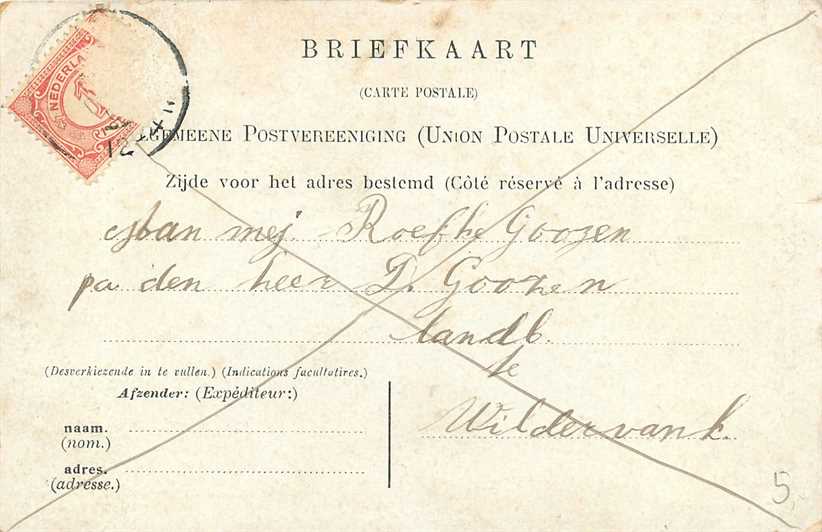 BRIEFKAART
(CARTE POSTALE)
LGEMEENE POSTVEREENIGING (UNION POSTALE UNIVERSELLE)
Zijde voor het adres bestemd (Côté réservé à l'adresse)
NEDERLA
Aan mej Roefke Goozen
pa den heer D. Goozen
landb.
te
Wildervank.
(Desverkiezende in te vullen.) (Indications facultatires.)
Afzender: (Expéditeur:)
naam.
(nom.)
adres.
(adresse.)
5,-